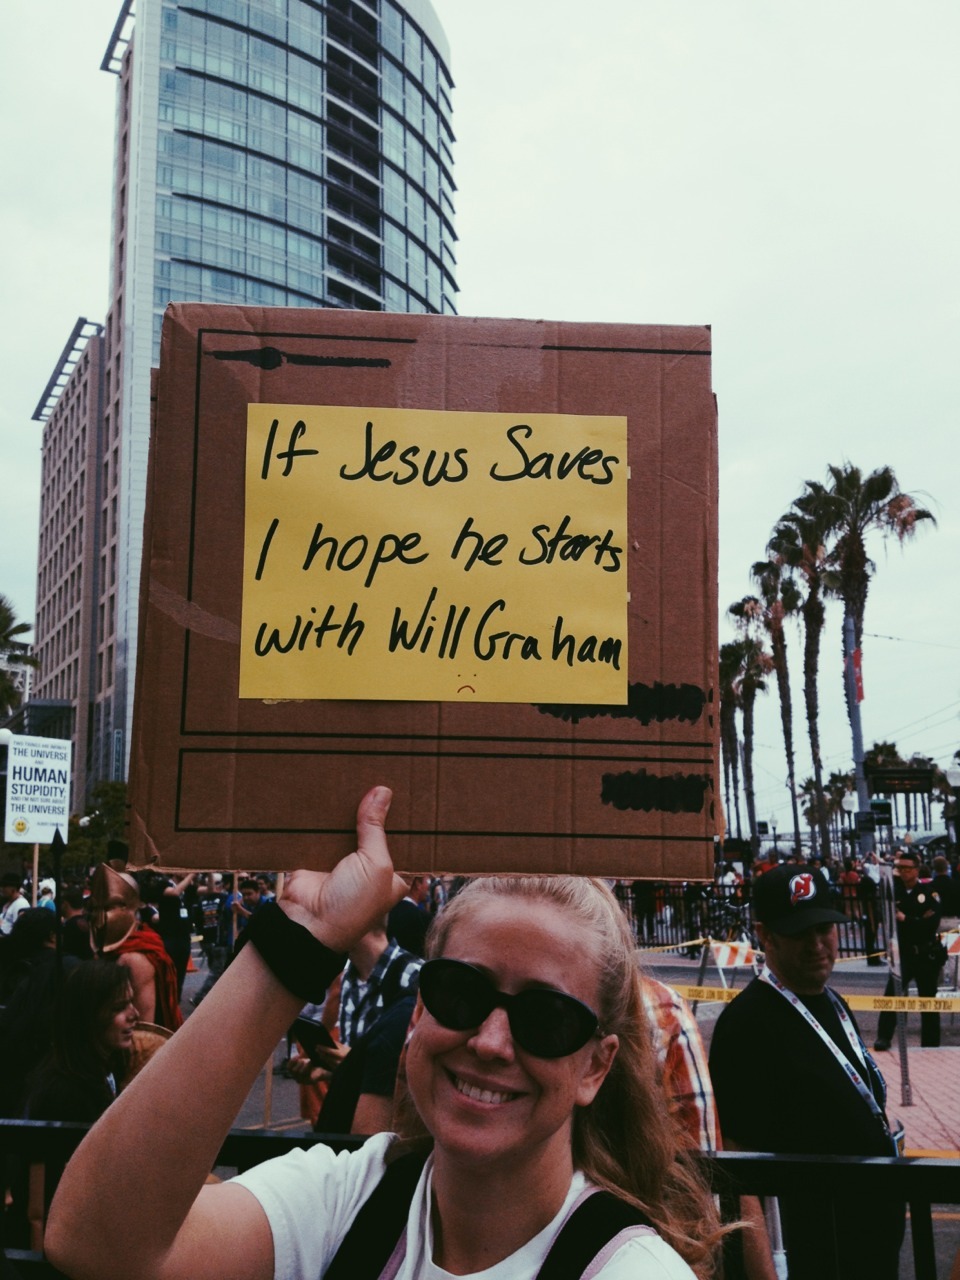 If Jesus Saves
I hope he starts
with Will Graham
TWO THINGS ARE INFINITE
THE UNIVERSE
AND
HUMAN
STUPIDITY;
AND I'M NOT SURE ABOUT
THE UNIVERSE
POLICE LINE DO NOT CROSS